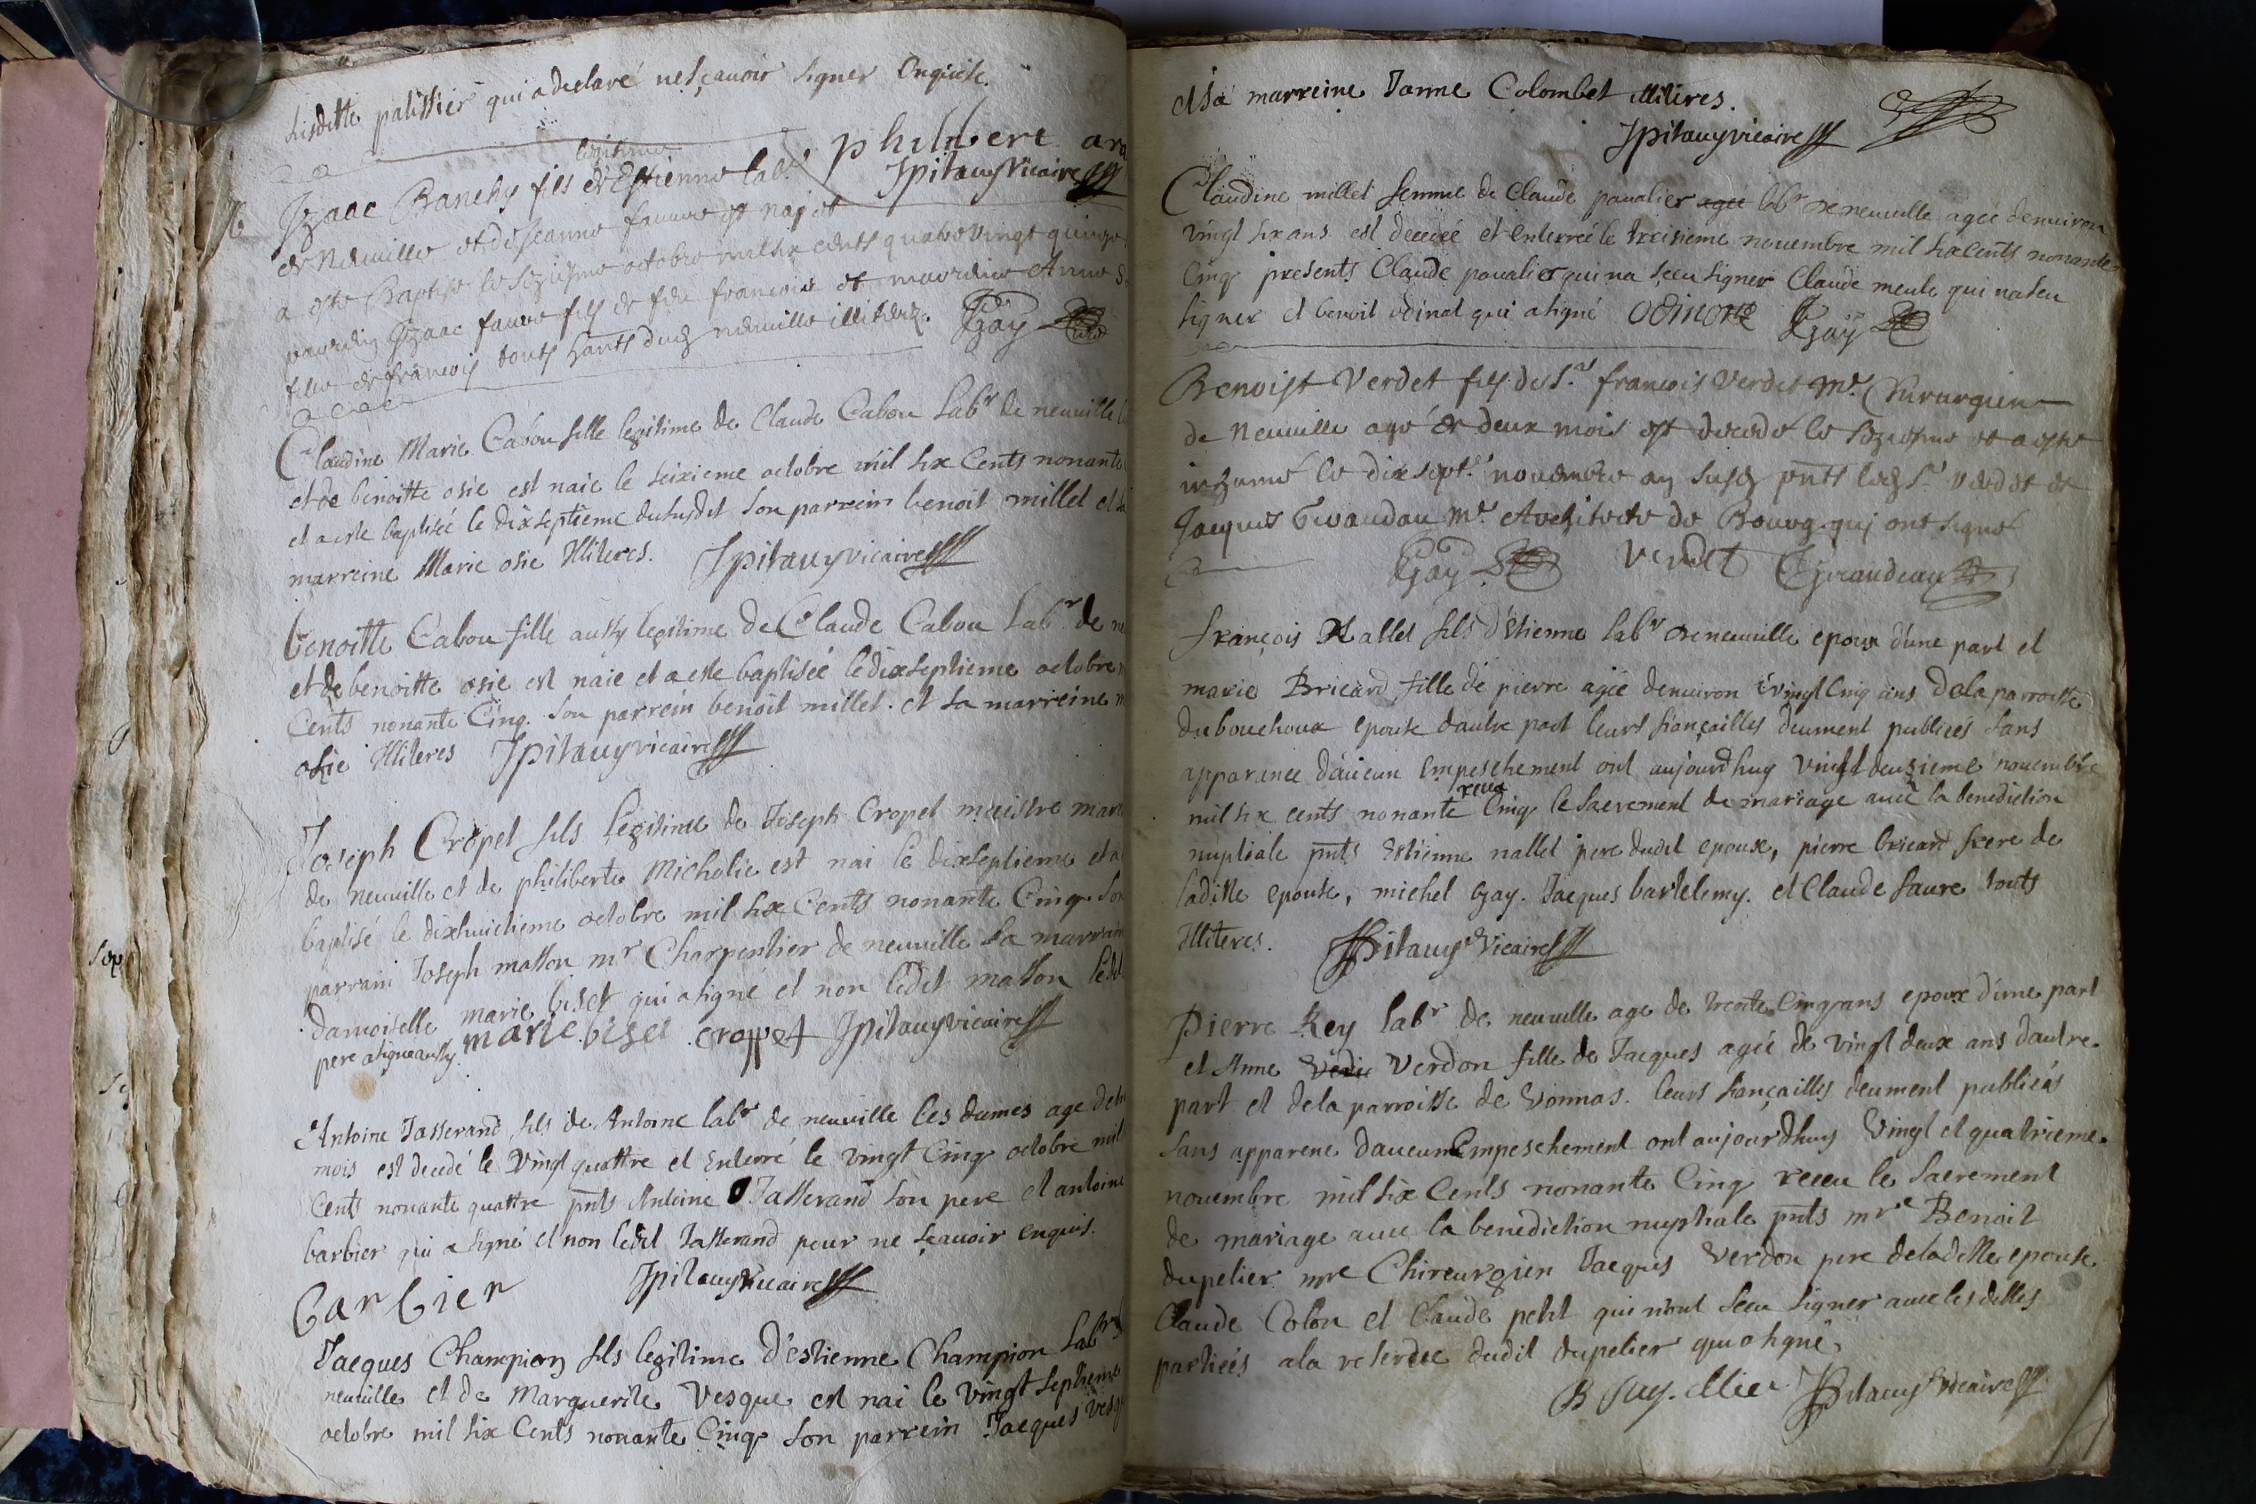 susditte palissier qui a declaré ne sçavoir signer Enquise.
philibert
JPitauy Vicaire
legitime
Izaac Banchy fils d'Estienne lab.r
de Neuville et de Jeanne fauvre est nay et
a esté Baptisé le seziesme octobre mil six cents quatre vingt quinze
parrain Izaac fauvre fils de feu francois et marreine Anne
fille de francois touts habts dud neuville illiteres. Gay
Claudine Marie Cabou fille legitime de Claude Cabou Labr de neuville
et de benoitte osie est naie le seixieme octobre mil six Cents nonante
et a esté baptisée le dixseptieme du susdit son parrein benoit millet et sa
marreine Marie osie Illiteres. JPitauy vicaire
benoitte Cabou fille aussy legitime de Claude Cabou Labr de
et de benoitte osie est naie et a esté baptisée le dixseptieme octobre
Cents nonante Cinq. son parrein benoit millet. et sa marreine
osie Illiteres JPitauy vicaire
Joseph Cropet fils legitime de Joseph Cropet maistre
de neuville et de philiberte Micholie est nai le dixseptieme et a
baptisé le dixhuictieme octobre mil six Cents nonante Cinq. son
parrain Joseph masson mr Charpentier de neuville sa marraine
Damoiselle marie biset qui a signé et non ledit masson ledit
pere a signé aussy. marie biset croppet JPitauy vicaire
Antoine Jasserand fils de Antoine labr de neuville les dames age de
mois est decedé le vingt quattre et Enterré le vingt Cinq octobre mil
Cents nonante quattre pnts Antoine Jasserand son pere et antoine
barbier qui a signé et non ledit Jasserand pour ne sçavoir enquis.
barbier JPitauy Vicaire
Jacques Champion fils legitime d'Estienne Champion Labr
neuville et de Marguerite Vesque est nai le vingt septieme
octobre mil six Cents nonante Cinq son parrein Jacques
et sa marreine Janne Colombet illiteres.
JPitauy vicaire
Claudine millet femme de Claude pavalier agée labr de neuville agée denuiron
vingt six ans est decedée et enterrée le treisieme novembre mil six Cents nonante
Cinq presents Claude pavalier qui na sçeu signer Claude meule qui na seu
signer et benoit odinet qui a signé Gay
Benoist Verdet fils de Sr francois Verdet Mr. Chirurgien
de Neuville agé de deux mois est decedé le seziesme et a esté
inhumé le dix septe. novembre an susd pnts led Sr verdet et
Jacques Giraudau Mr. Architecte de Bourg qui ont signé
Gay Verdet Giraudeau
françois Nallet fils d'Estienne labr de neuville epoux d'une part et
marie Bricard fille de pierre agée denuiron vingt Cinq ans Dela parroitte
du bouchoux epouse dautre part leurs fiançailles deument publieés sans
apparence d'aucun Empeschement ont aujourdhuy vingt deuxieme novembre
receu
mil six cents nonante Cinq le sacrement de mariage avec la benediction
nuptiale pnts Estienne nallet pere dudit epoux, pierre bricard frere de
laditte epouse, michel Gay. Jacques bartelemy. et Claude faure touts
Illiteres. JPitauy Vicaire
Pierre Rey labr de neuville age de trente Cinq ans epoux d'une part
et Anne Verdon fille de Jacques agée de vingt deux ans dautre
part et dela parroisse de Vonnas. leurs fiançailles deument publieés
sans apparene daucun Empeschement ont aujourdhuy Vingt et quatrieme
novembre mil six Cents nonante Cinq receu le Sacrement
de mariage avec la benediction nuptiale pnts mre Benoit
dupelier mre Chireurgien Jacques Verdon pere deladitte epouse
Claude Colon et Claude petit qui n'ont sceu signer avec les dittes
partieés a la reserve dudit dupelier qui a signé.
JPitauy Vicaire